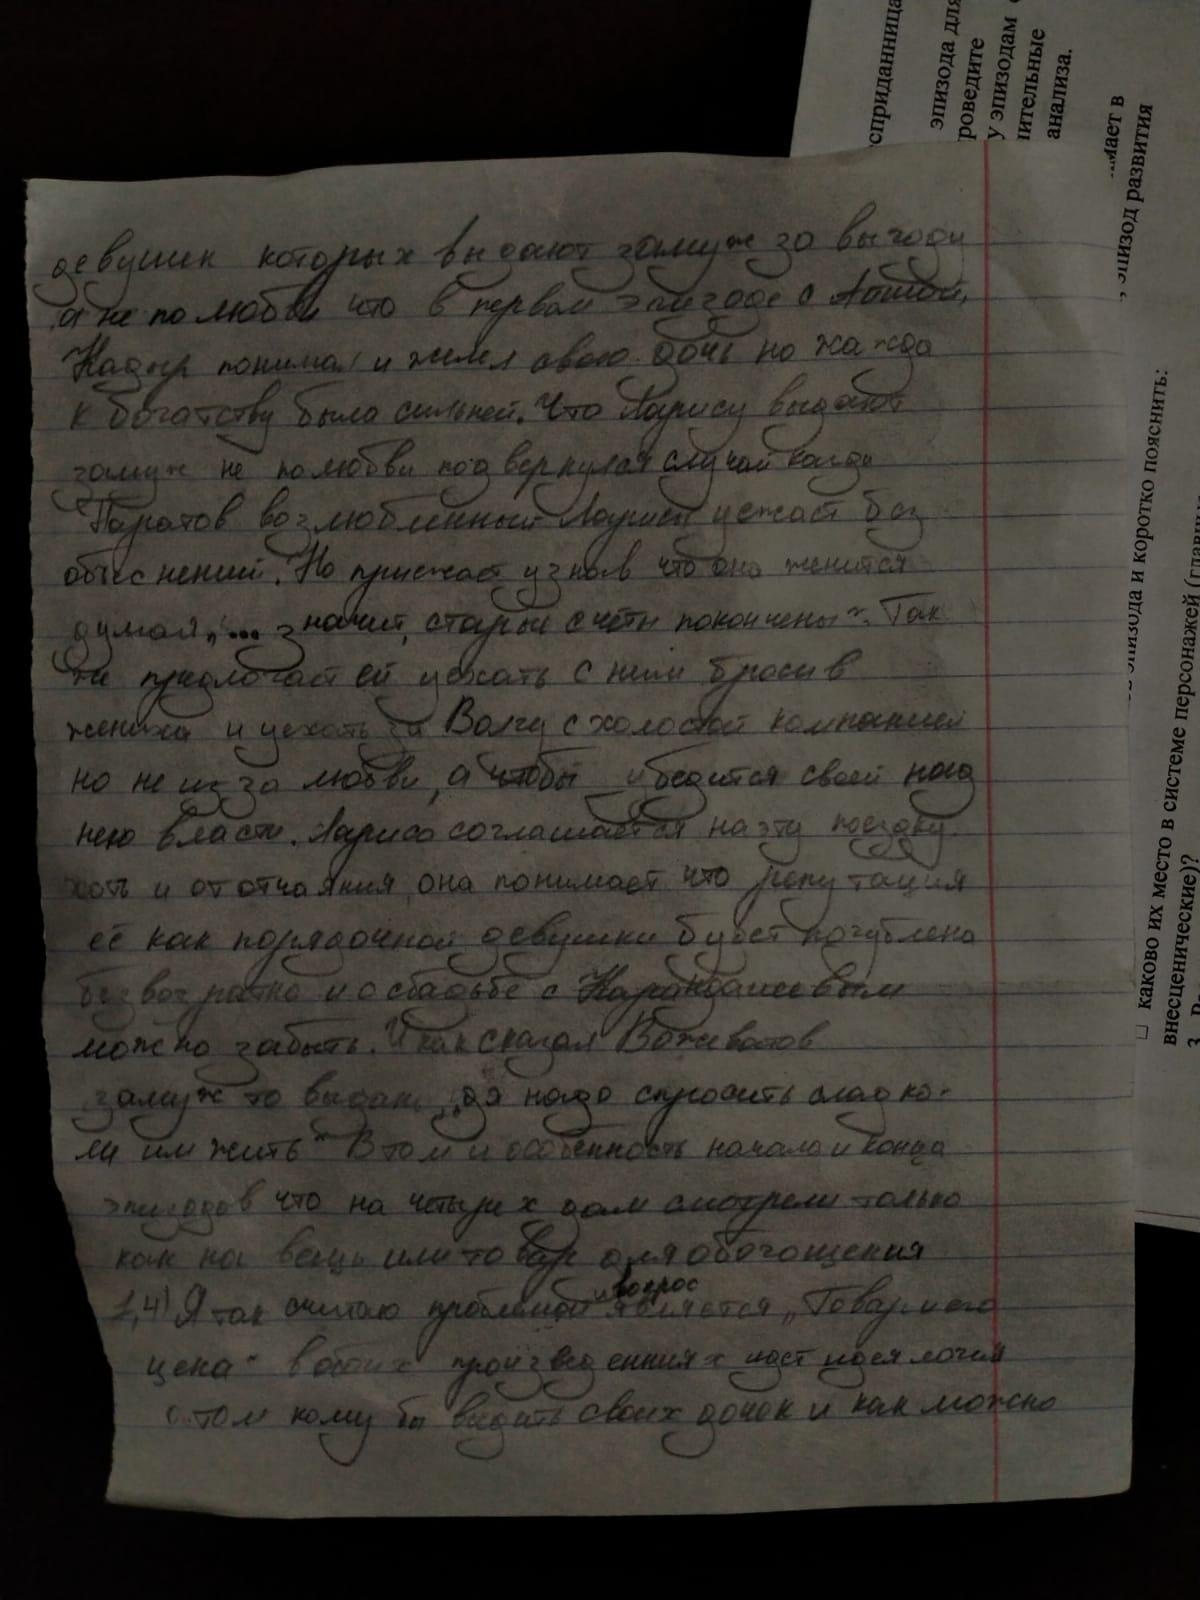 девушек которых выдают замуж за выгоду
а не по любви что в первом эпизоде с
понимал и жалел свою дочь но жажда
к богатству была сильней. Что Ларису выдают
замуж не по любви подвернулся случай когда
Паратов возлюбленный Ларисы уежает без
обяснений. Но приежает узнав что она женится
думая „... значит, старые счёты покончены". Так
же предлогает ей уехать с ним бросив
жениха и уехать за Волгу с холостой компанией
но не из за любви, а чтобы убедится своей над
нею власти. Лариса соглашается на эту поездку
хоть и от отчаяния, она понимает что репутация
её как порядочной девушки будет погублена
безвозратно и о сбадьбе с Карандашевым
можно забыть. И как сказал Вожеватов
замуж то выдан „да надо спросить сладко-
ли им жить" В том и особенность начала и конца
эпизодов что на четырех дам смотрели только
как на вещь или товар для обогощения
1,4) Я так считаю проблемой и вопрос является „Товар и его
цена" в обоих произведениях идет идея
о том кому бы выдать своих дочок и как можно
сприданница
эпизода для
роведите
у эпизодам
ительные
анализа.
мает в
, эпизод развития
эпизода и коротко пояснить:
□ каково их место в системе персонажей (главны
внесценические)?
3.